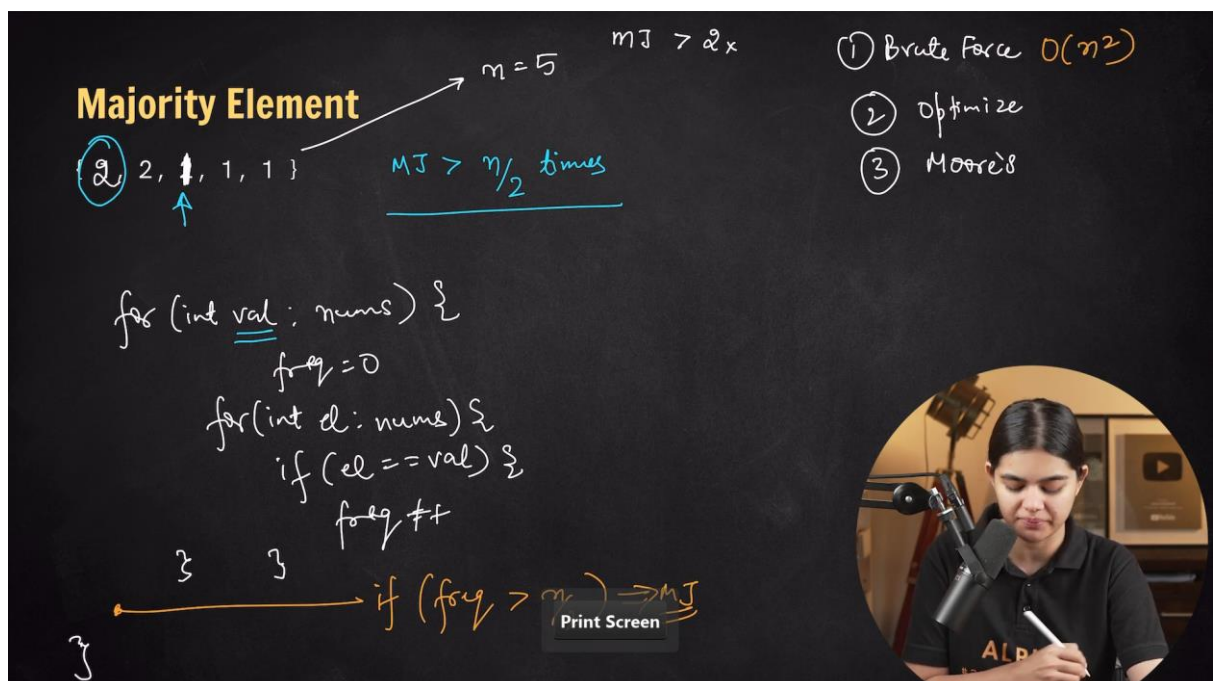 n = 5
MJ > 2x
Majority Element
{ 2, 2, 1, 1, 1 }
MJ > n/2 times
① Brute Force O(n2)
② Optimize
③ Moore's
for (int val : nums) {
freq = 0
for(int el : nums) {
if (el == val) {
freq ++
} }
if (freq > n ) => MJ
Print Screen
}